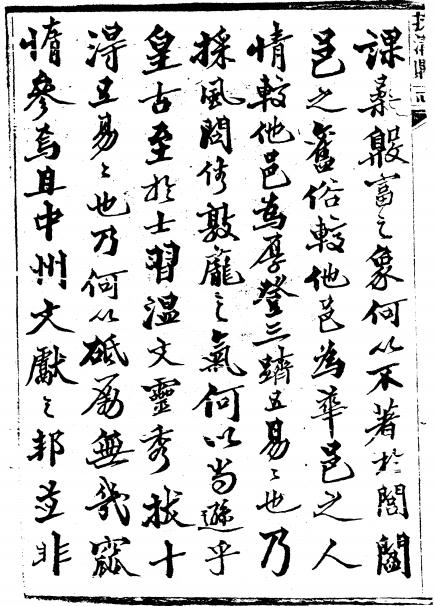 課桑殷富之象何以不著於閭閻
邑之舊俗較他邑為率邑之人
情較他邑為厚登三躋五易〻也乃
採風問俗敦龐之氣何以尚遜乎
皇古至於士習溫文靈秀拔十
得五易〻也乃何以砥厲無幾窳
惰參焉且中州文獻之邦並非